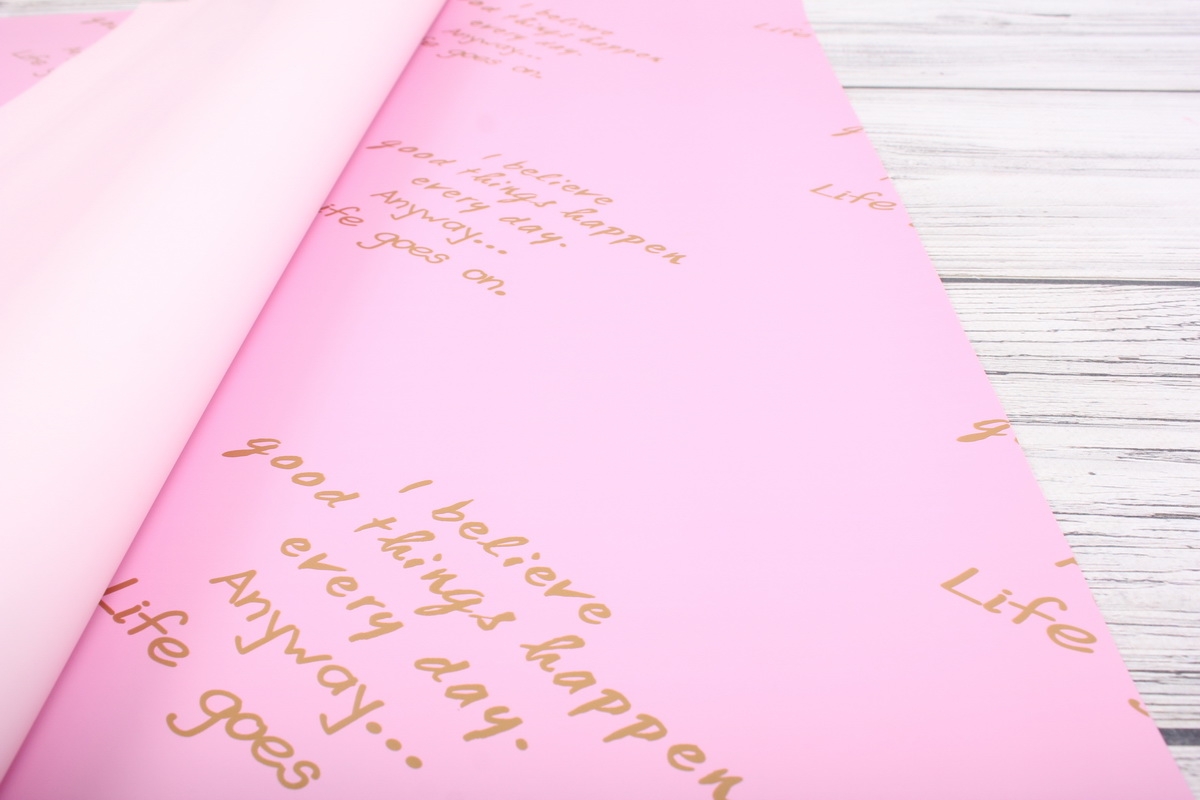 I believe
good things happen
every day.
Anyway...
Life goes on.
Life
I believe
good things happen
every day.
Anyway...
Life goes on.
Life
g
I believe
good things happen
every day.
Anyway...
Life goes
Life
g